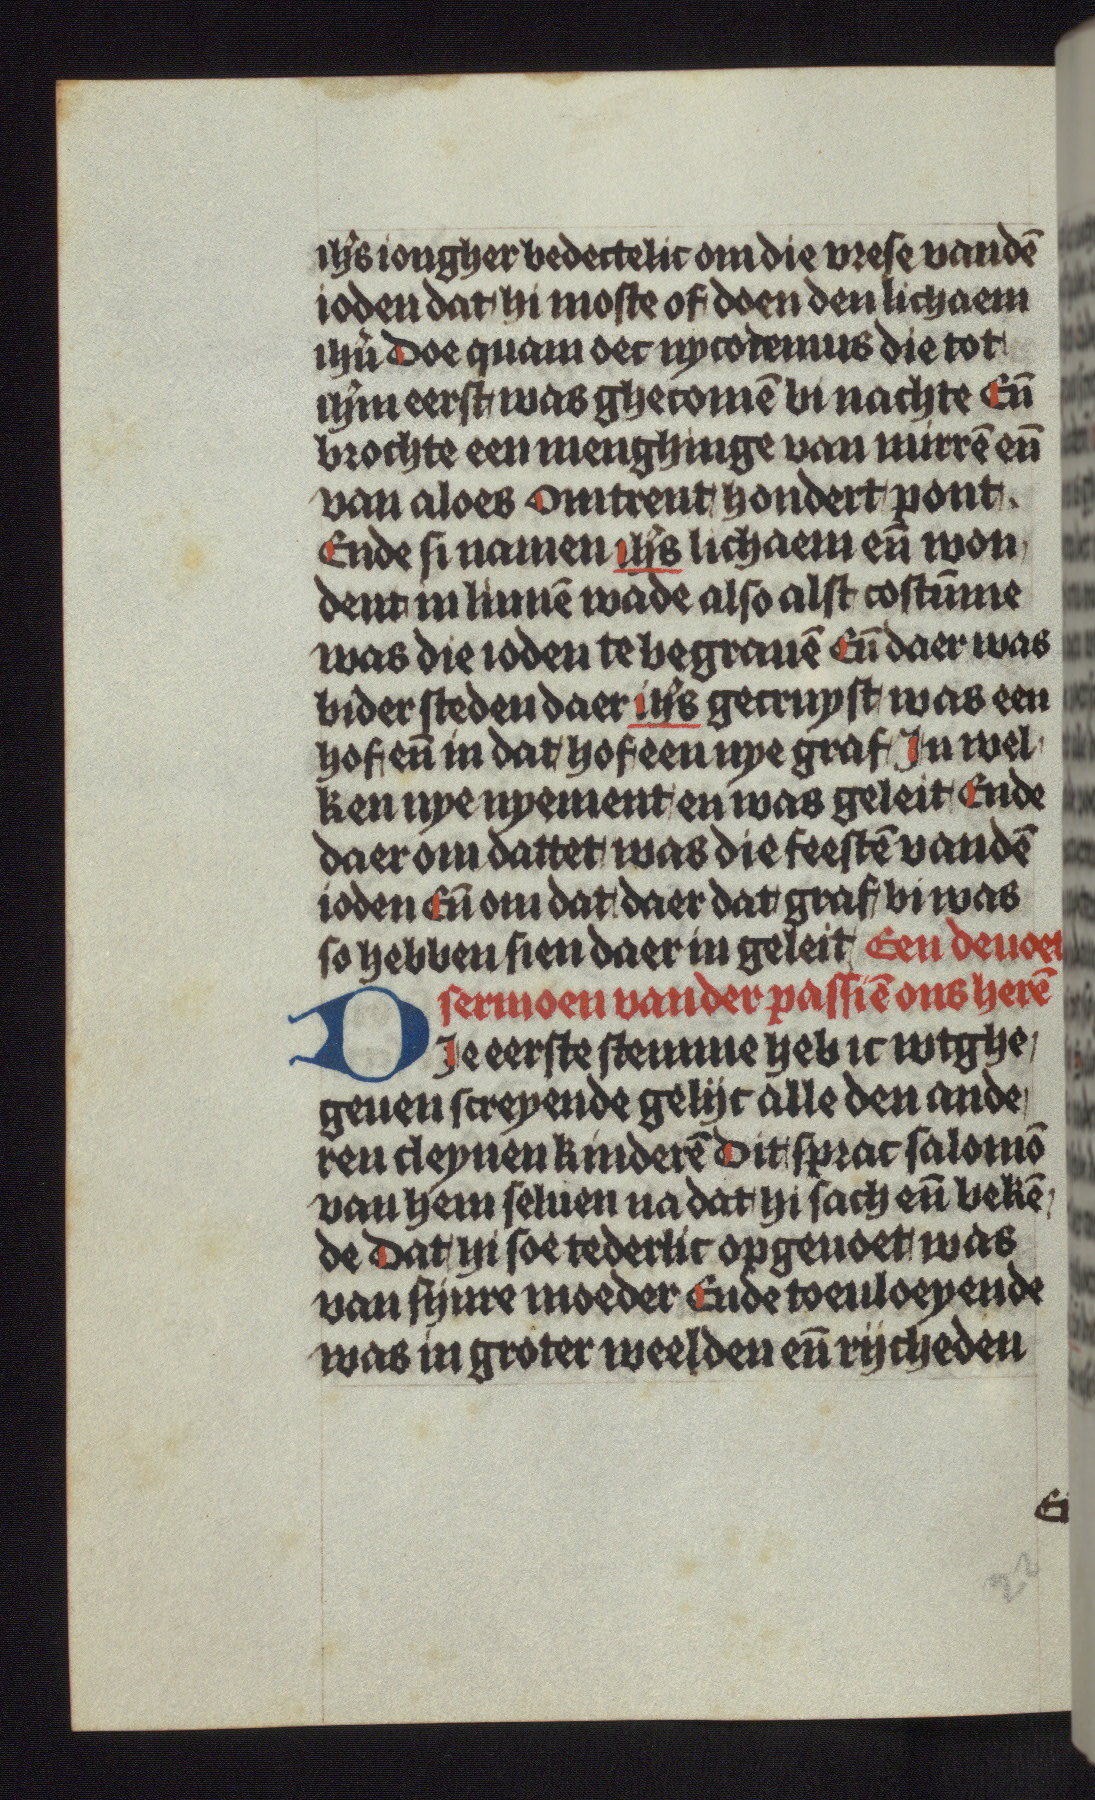 ihūs iongher bedectelic om die vrese vandē
ioden dat hi moste of doen den lichaem
ihū Doe quam oec nycodemus die tot
ihm eerst was ghecomē bi nachte Eñ
brochte een menghinge van mirrē eñ
van aloes Omtrent hondert pont.
Ende si namen ihūs lichaem eñ won
dent in linnē wade also alst costūme
was die ioden te begrauē Eñ daer was
bider steden daer ihūs gecruyst was een
hof eñ in dat hof een nye graf In wel
ken nye nyement en was geleit Ende
daer om dattet was die feestē vandē
ioden Eñ om dat daer dat graf bi was
so hebben sien daer in geleit Een deuoet
sermoen vander passiē ons herē
DIe eerste stemme heb ic wtghe
geuen screyende gelijc alle den ande
ren cleynen kinderē Dit sprac salomō
van hem seluen na dat hi sach eñ bekē
de Dat hi soe tederlic opgeuoet was
van sijnre moeder Ende toeuloeyende
was in groter weelden eñ rijcheden